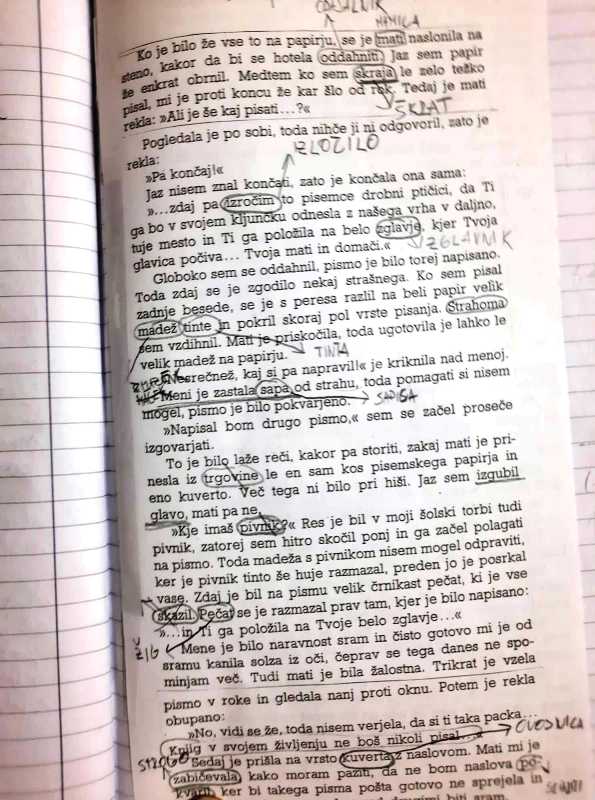 MAMICA
Ko je bilo že vse to na papirju, se je mati naslonila na
steno, kakor da bi se hotela oddahniti. Jaz sem papir
že enkrat obrnil. Medtem ko sem skraja le zelo težko
pisal, mi je proti koncu že kar šlo od rok. Tedaj je mati
rekla: »Ali je še kaj pisati...?«
ŠKRAT
Pogledala je po sobi, toda nihče ji ni odgovoril, zato je
rekla:
IZLOČILO
»Pa končaj!«
Jaz nisem znal končati, zato je končala ona sama:
»...zdaj pa izročim to pisemce drobni ptičici, da Ti
ga bo v svojem kljunčku odnesla z našega vrha v daljno,
tuje mesto in Ti ga položila na belo zglavje, kjer Tvoja
glavica počiva... Tvoja mati in domači.«
VZGLAVNIK
Globoko sem se oddahnil, pismo je bilo torej napisano.
Toda zdaj se je zgodilo nekaj strašnega. Ko sem pisal
zadnje besede, se je s peresa razlil na beli papir velik
madež tinte in pokril skoraj pol vrste pisanja. Strahoma
sem vzdihnil. Mati je priskočila, toda ugotovila je lahko le
velik madež na papirju.
TINTA
»Nesrečnež, kaj si pa napravil!« je kriknila nad menoj.
Meni je zastala sapa od strahu, toda pomagati si nisem
mogel, pismo je bilo pokvarjeno.
»Napisal bom drugo pismo,« sem se začel proseče
izgovarjati.
To je bilo laže reči, kakor pa storiti, zakaj mati je pri-
nesla iz trgovine le en sam kos pisemskega papirja in
eno kuverto. Več tega ni bilo pri hiši. Jaz sem izgubil
glavo, mati pa ne.
»Kje imaš pivnik?« Res je bil v moji šolski torbi tudi
pivnik, zatorej sem hitro skočil ponj in ga začel polagati
na pismo. Toda madeža s pivnikom nisem mogel odpraviti,
ker je pivnik tinto še huje razmazal, preden jo je posrkal
vase. Zdaj je bil na pismu velik črnikast pečat, ki je vse
skazil. Pečat se je razmazal prav tam, kjer je bilo napisano:
»...in Ti ga položila na Tvoje belo zglavje...«
ŽIG
Mene je bilo naravnost sram in čisto gotovo mi je od
sramu kanila solza iz oči, čeprav se tega danes ne spo-
minjam več. Tudi mati je bila žalostna. Trikrat je vzela
pismo v roke in gledala nanj proti oknu. Potem je rekla
obupano:
»No, vidi se že, toda nisem verjela, da si ti taka packa...
Knjig v svojem življenju ne boš nikoli pisal...«
OVOJNICA
Sedaj je prišla na vrsto kuverta z naslovom. Mati mi je
zabičevala, kako moram paziti, da ne bom naslova po-
kvaril, ker bi takega pisma pošta gotovo ne sprejela in